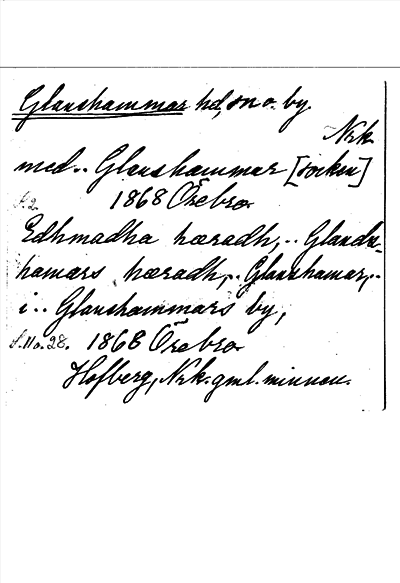 Glanshammar hd, sn o. by.
Nrk.
med.. Glanshammar [socken]
s. 2. 1868 Örebro.
Edhmadha hæradh,.. Glandu-
hamars hæradh,.. Glanshamar,..
i.. Glanshammars by,
s. 11 o. 28. 1868 Örebro.
Hofberg, Nrk. gml. minnen.